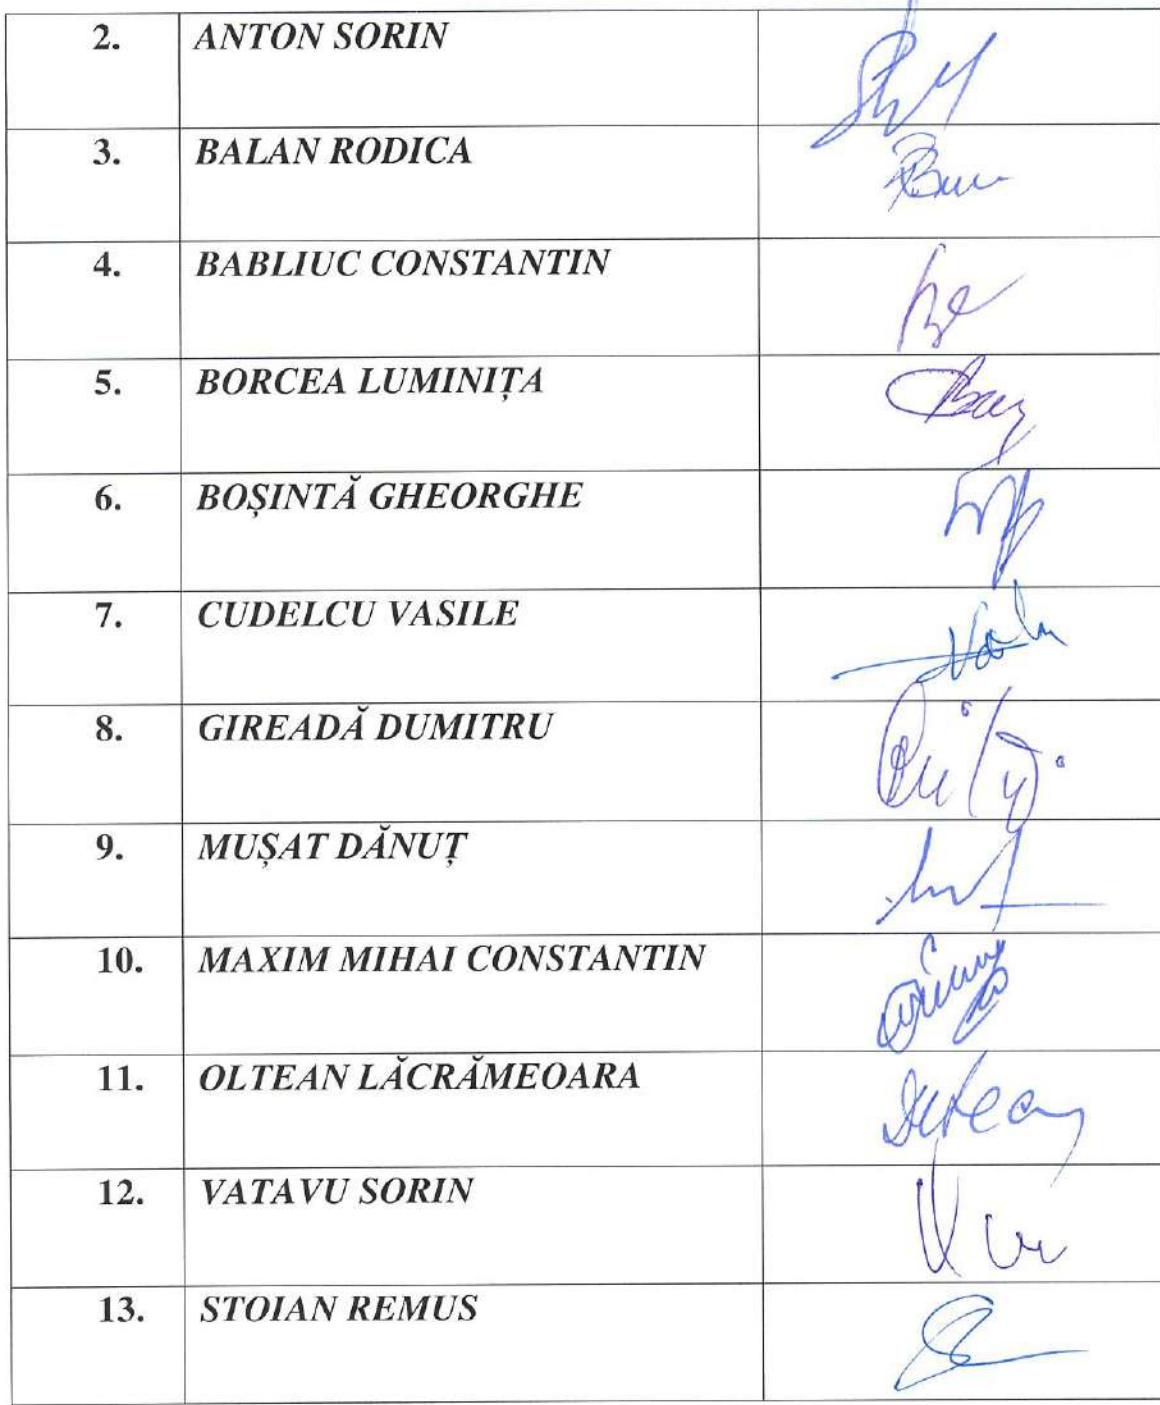 2. ANTON SORIN
3. BALAN RODICA
4. BABLIUC CONSTANTIN
5. BORCEA LUMINIȚA
6. BOȘINTĂ GHEORGHE
7. CUDELCU VASILE
8. GIREADĂ DUMITRU
9. MUȘAT DĂNUȚ
10. MAXIM MIHAI CONSTANTIN
11. OLTEAN LĂCRĂMEOARA
12. VATAVU SORIN
13. STOIAN REMUS